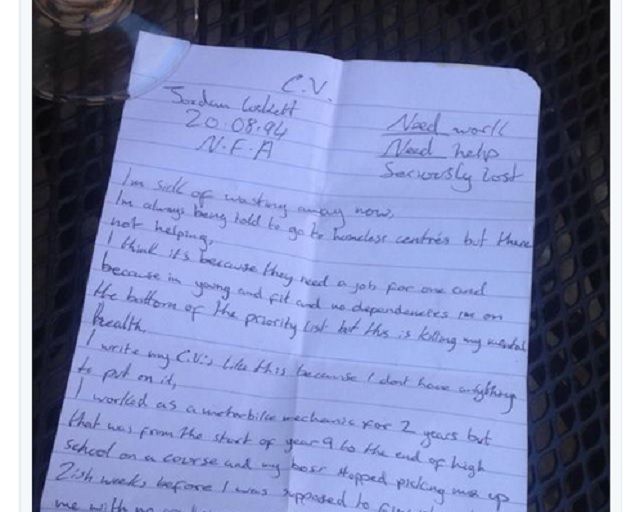 C.V.
Jordan Lockett
20.08.94
N.F.A
Need work
Need help
Seriously lost
Im sick of wasting away now,
Im always being told to go to homeless centres but there
not helping,
I think its because they need a job for one and
because im young and fit and no dependencies im on
the bottom of the priority list but this is killing my mental
health.
I write my C.V.'s like this because I dont have anything
to put on it,
I worked as a motorbike mechanic for 2 years but
that was from the start of year 9 to the end of high
school on a course and my boss stopped picking me up
2ish weeks before I was supposed to
me with no